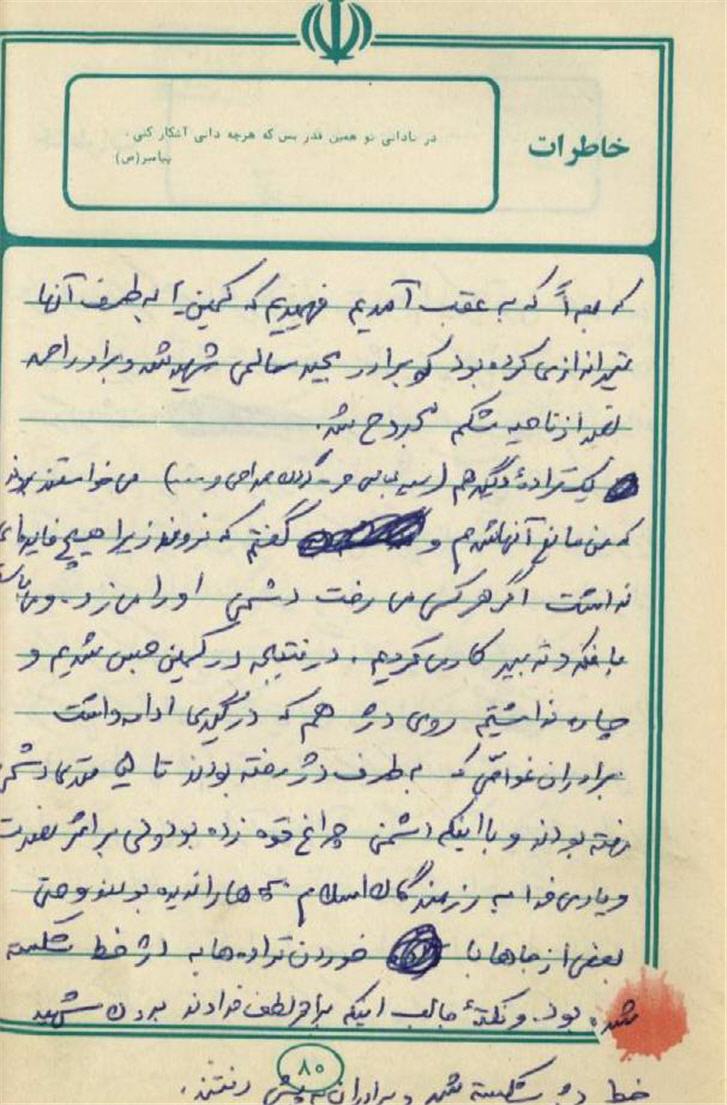 خاطرات
در نادانی تو همین قدر بس که هرچه دانی آشکار کنی .
پیامبر(ص)
که بعداً که به عقب آمدیم فهمیدیم که کمین یا به طرف آنها
تیراندازی کرده بود که برادر مجید سالمی شهید شد و برادر احمد
از ناحیه شکم مجروح شد.
یکترادهٔ دیگر هم ( و ....) می خواستند بروند
که من مانع آنها شدم و گفتم که نروند زیرا هیچ فایده‌ای
نداشت اگر هرکس می رفت دشمن او را می زد. و می
با فکر و تدبیر کار می کردیم . در نتیجه در کمین حبس شدیم و
چاره نداشتیم روی دژ هم که درگیری ادامه داشت
برادران غواصی که به طرف دژ رفته بودند تا ۵ متری دشمن
رفته بودند و با اینکه دشمن چراغ قوه زده بود ولی بر اثر نصرت
و یاری خدا به رزمندگان اسلام آنها را ندیده بودند و حتی
بعضی از جاها با خوردن تراده‌ها به دژ خط شکسته
شده بود. و نکتهٔ جالب اینکه بر اثر لطف خداوند بدون شهید
۸۰
خط دژ شکسته شد و برادران به پیش رفتند.